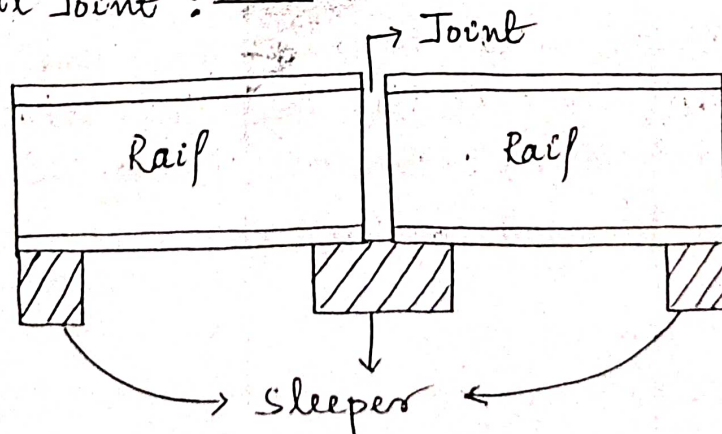 Joint :
Joint
Rail Rail
Sleeper